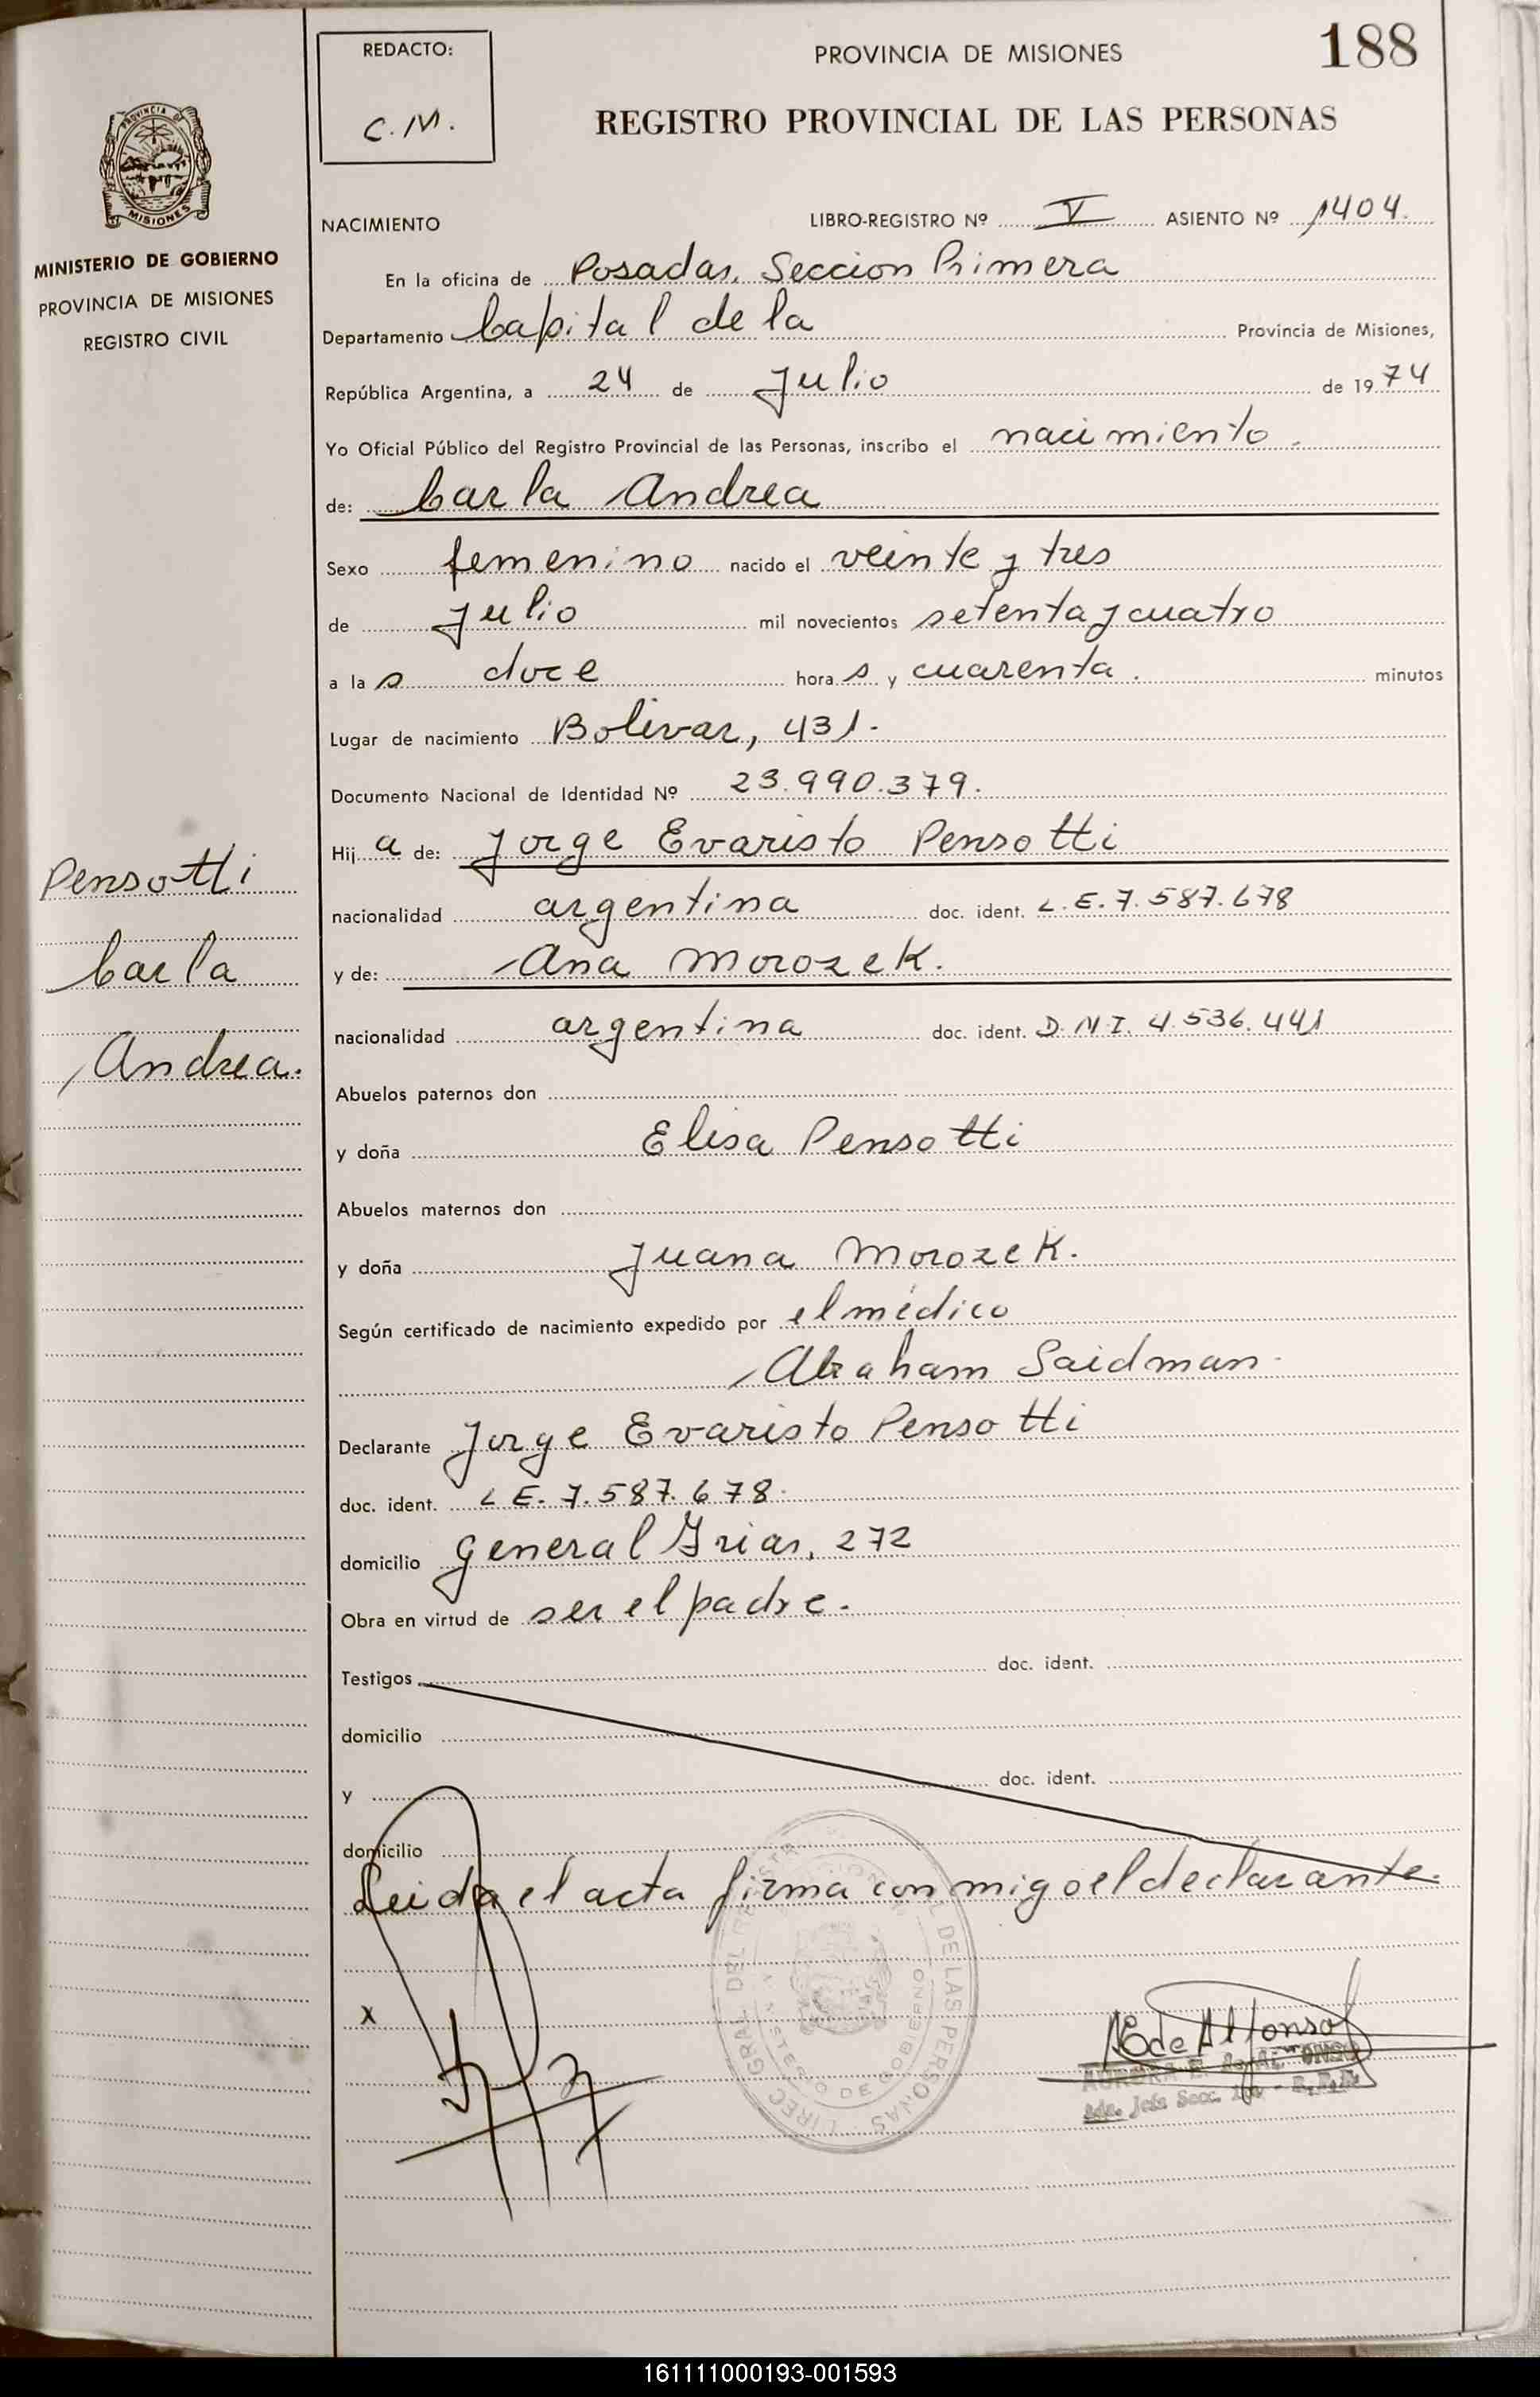 188
REDACTO:
C.M.
PROVINCIA DE MISIONES
REGISTRO PROVINCIAL DE LAS PERSONAS
PROVINCIA DE
MISIONES
MINISTERIO DE GOBIERNO
PROVINCIA DE MISIONES
REGISTRO CIVIL
NACIMIENTO LIBRO-REGISTRO Nº V ASIENTO Nº 1404.
En la oficina de Posadas, Seccion Primera
Departamento Capital de la Provincia de Misiones,
República Argentina, a 24 de Julio de 1974
Yo Oficial Público del Registro Provincial de las Personas, inscribo el nacimiento.
de: Carla Andrea
Sexo femenino nacido el veinte y tres
de Julio mil novecientos setenta y cuatro
a las doce horas y cuarenta. minutos
Lugar de nacimiento Bolivar, 431.
Documento Nacional de Identidad Nº 23.990.379.
Hija de: Jorge Evaristo Pensotti
nacionalidad argentina doc. ident. L.E. 7.587.678
y de: Ana Morozek.
nacionalidad argentina doc. ident. D.N.I. 4.536.441
Abuelos paternos don
y doña Elisa Pensotti
Abuelos maternos don
y doña Juana Morozek.
Según certificado de nacimiento expedido por el médico
Abraham Saidman.
Declarante Jorge Evaristo Pensotti
doc. ident. L E. 7.587.678.
domicilio General 272
Obra en virtud de ser el padre.
Testigos doc. ident.
domicilio
y doc. ident.
domicilio
Leida el acta firma conmigo el declarante.
x
Pensotti
Carla
Andrea.
DE LAS PERSONAS
MINISTERIO DE GOBIERNO
E de Alfonso
AURORA E. de ALFONSO
161111000193-001593